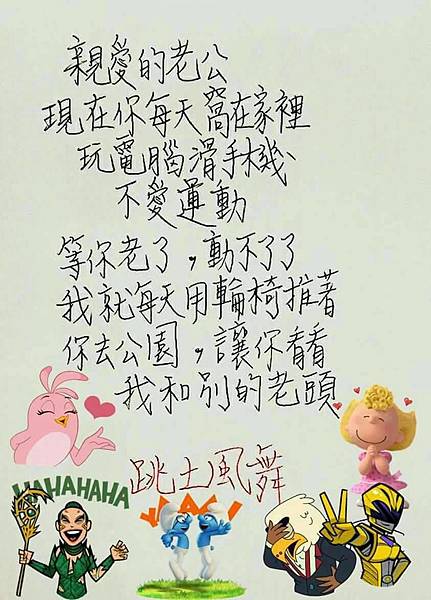 親愛的老公
現在你每天窩在家裡
玩電腦滑手機、
不愛運動
等你老了,動不了了
我就每天用輪椅推著
你去公園,讓你看看
我和別的老頭
跳土風舞
HAHAHAHA